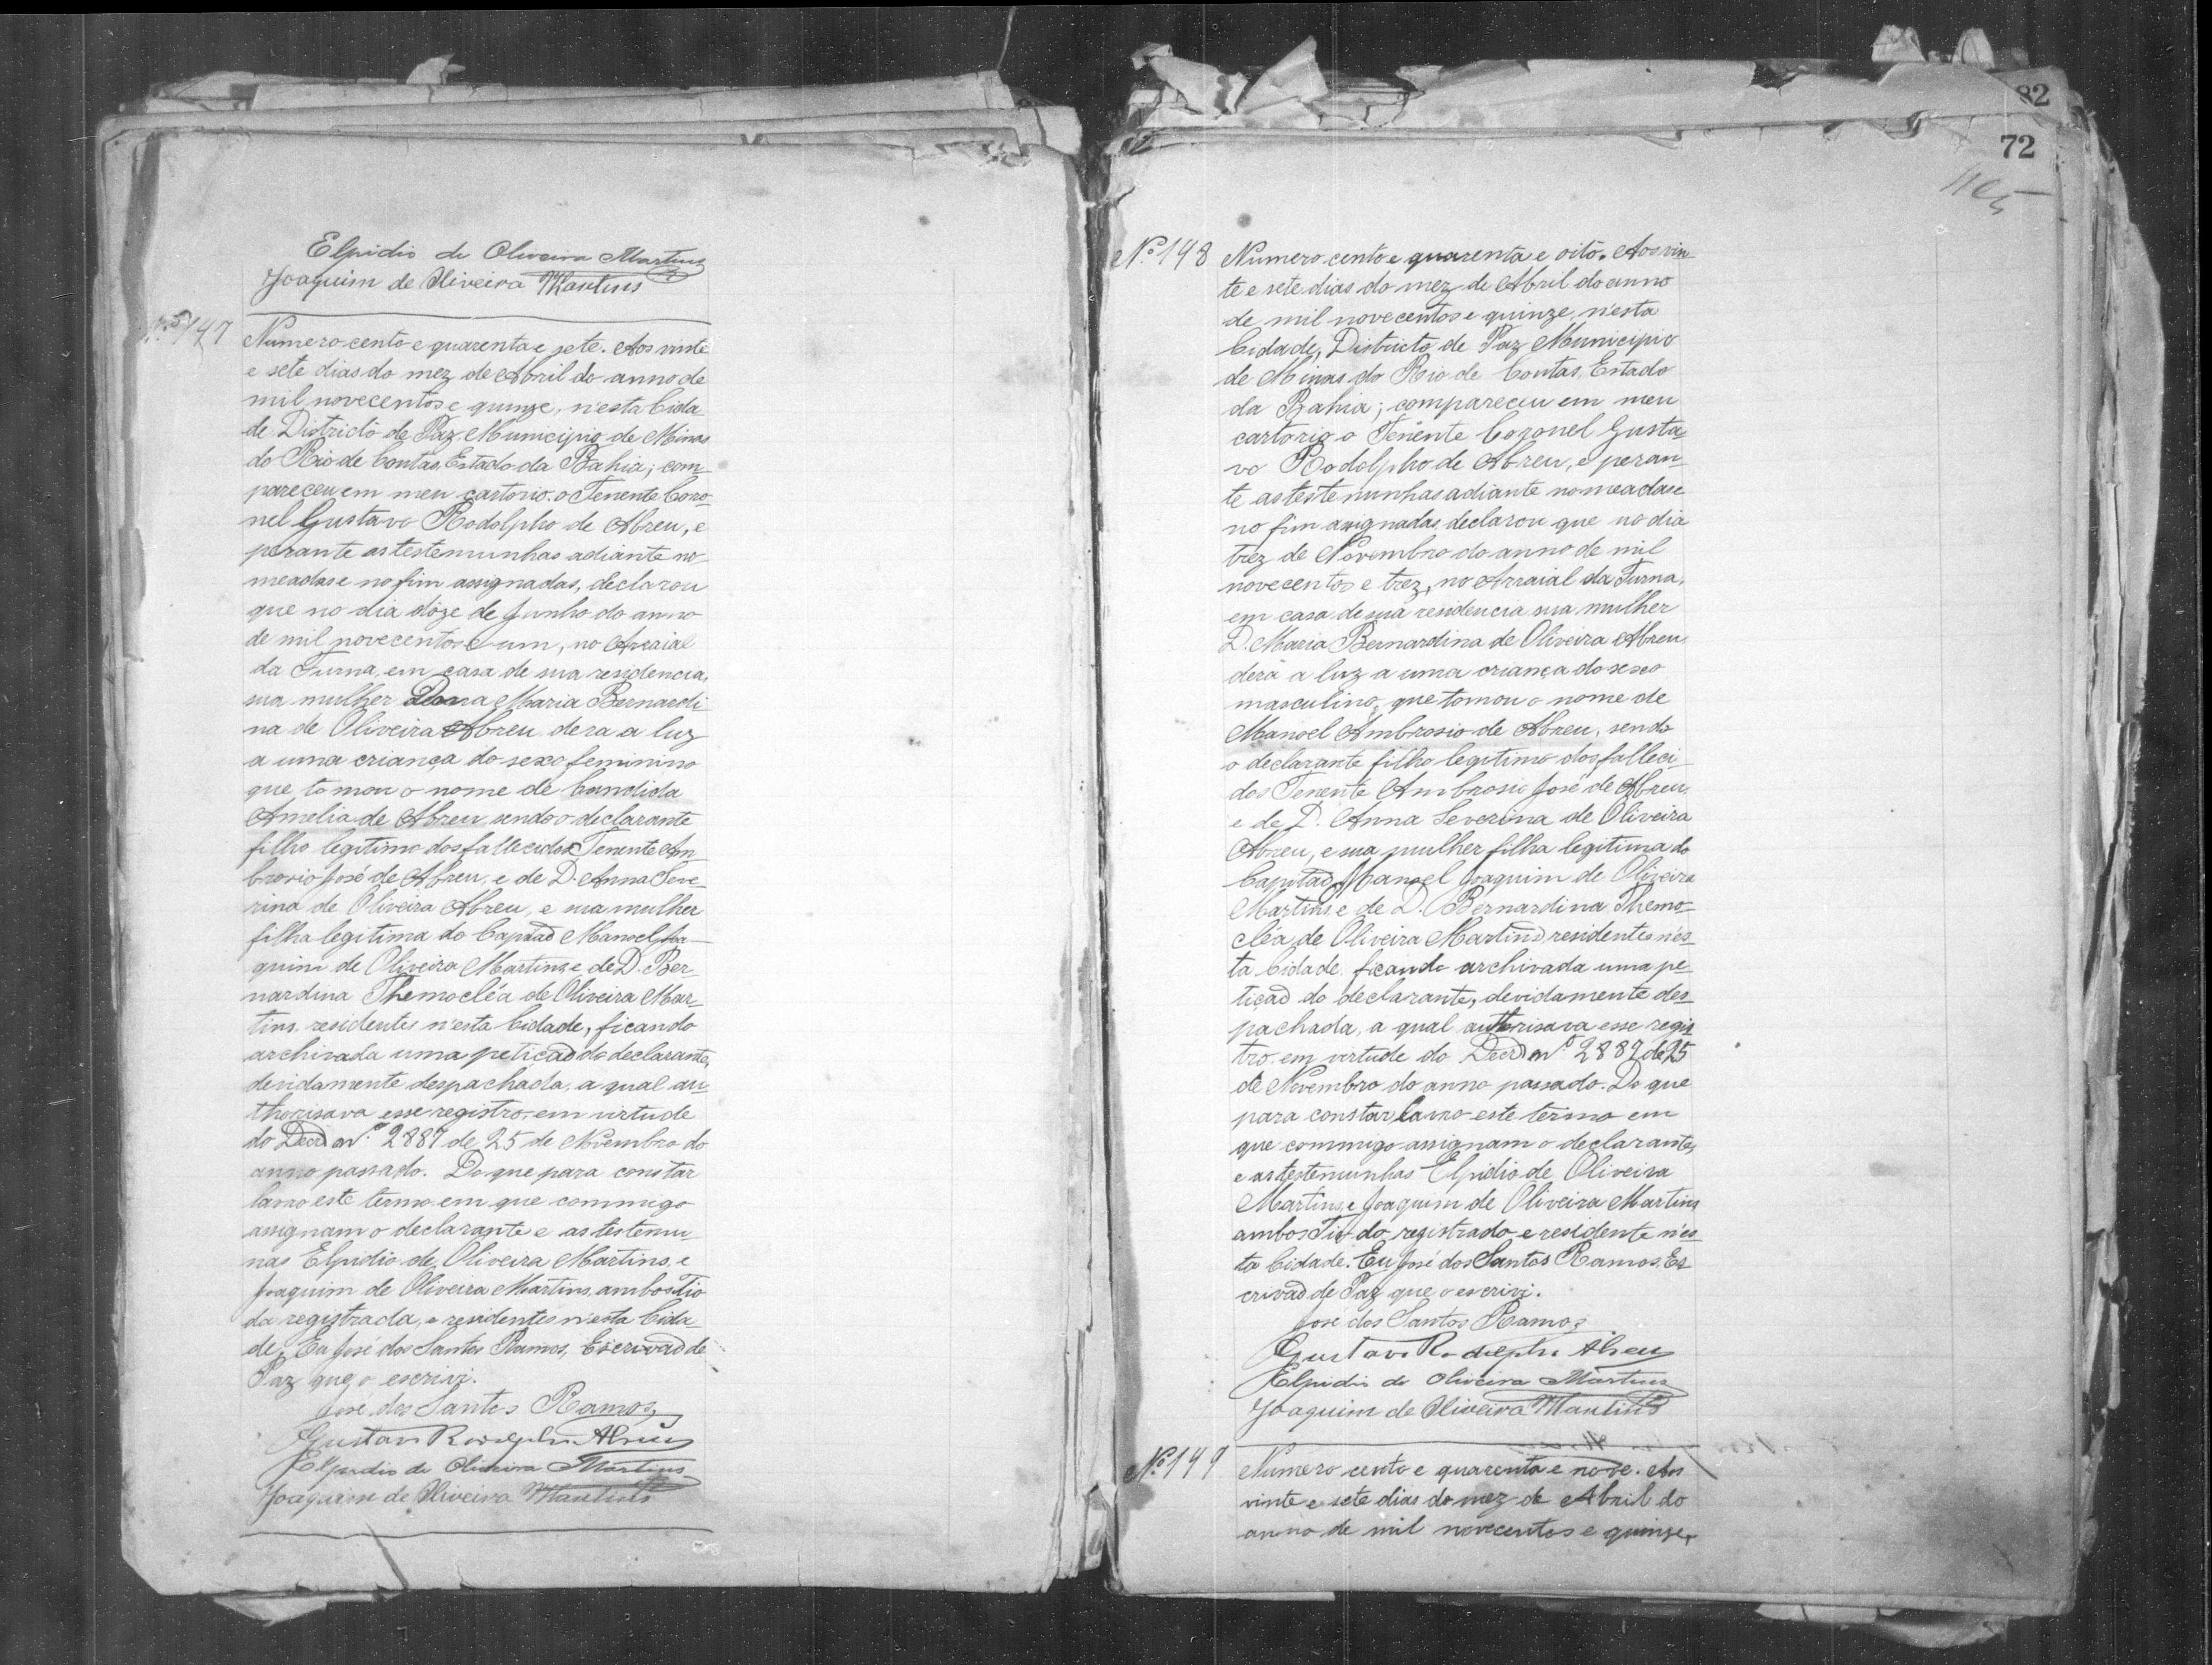 Elpidio de Oliveira Martins
Joaquim de Oliveira Martins
Nº 147
Numero cento e quarenta e sete. Aos vinte
e sete dias do mez de Abril do anno de
mil novecentos e quinze, n'esta Cida
de Districto de Paz, Municipio de Minas
do Rio de Contas, Estado da Bahia; com-
pareceu em meu cartorio o Tenente Coro-
nel Gustavo Rodolpho de Abreu, e
perante as testemunhas adiante no-
meadas e no fim assignadas, declarou
que no dia doze de Junho do anno
de mil novecentos e um, no Arraial
da Furna, em casa de sua residencia,
sua mulher Dona Maria Bernardi
na de Oliveira Abreu dera a luz
a uma criança do sexo feminino
que tomou o nome de Candida
Amelia de Abreu, sendo o declarante
filho legitimo dos fallecidos Tenente Am
brosio José de Abreu, e de D. Anna Seve-
rina de Oliveira Abreu, e sua mulher
filha legitima do Capitaõ Manoel Joa-
quim de Oliveira Martins, e de D. Ber-
nardina Themocléa de Oliveira Mar-
tins, residentes n'esta Cidade, ficando
archivada uma petiçaõ do declarante,
devidamente despachada, a qual au-
thorisava esse registro em virtude
do Decrº nº 2887 de 25 de Novembro do
anno passado. Do que para constar
lavro este termo em que commigo
assignam o declarante e as testemu
nas Elpidio de Oliveira Martins, e
Joaquim de Oliveira Martins, ambos Tio
da registrada, e residentes n'esta Cida
de. Eu José dos Santos Ramos, Escrivaõ de
Paz que o escrivi.
José dos Santos Ramos
Gustavo Rodolpho Abreu
Elpidio de Oliveira Martins
Joaquim de Oliveira Martins
82
72
Nº 148
Numero cento e quarenta e oito. Aos vin-
te e sete dias do mez de Abril do anno
de mil novecentos e quinze, n'esta
Cidade, Districto de Paz Municipio
de Minas do Rio de Contas, Estado
da Bahia; compareceu em meu
cartorio o Tenente Coronel Gusta-
vo Rodolpho de Abreu, e peran-
te as testenunhas adiante nomeadas e
no fim assignadas, declarou que no dia
trez de Novembro do anno de mil
novecentos e trez, no Arraial da Furna,
em casa de sua residencia sua mulher
D. Maria Bernardina de Oliveira Abreu
dera a luz a uma criança do sexo
masculino, que tomou o nome de
Manoel Ambrosio de Abreu, sendo
o declarante filho legitimo dos falleci-
dos Tenente Ambrosio José de Abreu,
e de D. Anna Severina de Oliveira
Abreu, e sua mulher filha legitima do
Capitaõ Manoel Joaquim de Oliveira
Martins, e de D. Bernardina Themo-
cléa de Oliveira Martins, residentes n'es-
ta Cidade, ficando archivada uma pe-
tiçaõ do declarante, devidamente des-
pachada, a qual authorisava esse regis
tro, em virtude do Decrº nº 2887 de 25
de Novembro do anno passado. Do que
para constar lavro este termo em
que commigo assignam o declarante,
e as testemunhas Elpidio de Oliveira
Martins, e Joaquim de Oliveira Martins
ambos Tio do registrado e residente n'es
ta Cidade. Eu José dos Santos Ramos, Es
crivaõ de Paz que o escrivi.
José dos Santos Ramos
Gustavo Rodolpho Abreu
Elpidio de Oliveira Martins
Joaquim de Oliveira Martins
Nº 149
Numero cento e quarenta e nove. Aos
vinte e sete dias do mez de Abril do
anno de mil novecentos e quinze,